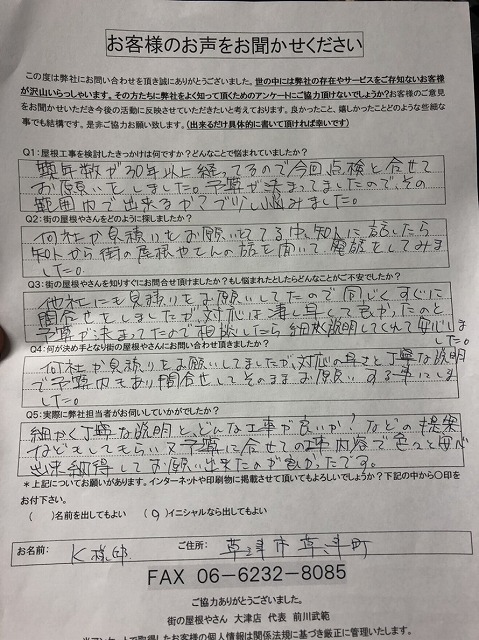 お客様のお声をお聞かせください
この度は弊社にお問い合わせを頂き誠にありがとうございました。世の中には弊社の存在やサービスをご存知ないお客様
が沢山いらっしゃいます。その方たちに弊社をよく知って頂くためのアンケートにご協力頂けないでしょうか？お客様のご意見
をお聞かせいただき今後の活動に反映させていただきたいと考えております。良かったこと、嬉しかったことどのような些細な
事でも結構です。是非ご協力お願い致します。（出来るだけ具体的に書いて頂ければ幸いです）
Q1：屋根工事を検討したきっかけは何ですか？どんなことで悩まれていましたか？
年数が30年以上経ってるので今回点検と合せて
お願いをしました。予算が決まってましたので、その
範囲内で出来るか？少し悩みました。
Q2：街の屋根やさんをどのように探しましたか？
何社か見積りをお願いしてる中、知人に話したら
知人から街の屋根やさんの話を聞いて、電話をしてみま
した。
Q3：街の屋根やさんを知りすぐにお問合せ頂けましたか？もし悩まれたとしたらどんなことがご不安でしたか？
他社にも見積りをお願いしてたので同じくすぐに
問合せをしましたが対応は凄く早くて良かったのと
予算が決まってたので相談したら細かく説明してくれて安心しま
した。
Q4：何が決め手となり街の屋根やさんにお問い合わせ頂きましたか？
何社か見積りをお願いしてましたが、対応の早さと丁寧な説明
で予算内もあり問合せしてそのままお願いする事にしま
した。
Q5：実際に弊社担当者がお伺いしていかがでしたか？
細かく丁寧な説明と、どんな工事が良いか！などの提案
などもしてもらい又予算に合せての工事内容で色々と安心
出来納得してお願い出来たのが良かったです。
＊上記についてお願いがあります。インターネットや印刷物に掲載させて頂いてもよろしいでしょうか？下記の中から〇印を
お付下さい。
（　）名前を出してもよい　（○）イニシャルなら出してもよい
お名前：　K様邸　ご住所：　草津市草津町
FAX 06-6232-8085
ご協力ありがとうございました。
街の屋根やさん 大津店 代表 前川武範
当アンケートで取得したお客様の個人情報は関係法規に基づき厳正に管理いたします。